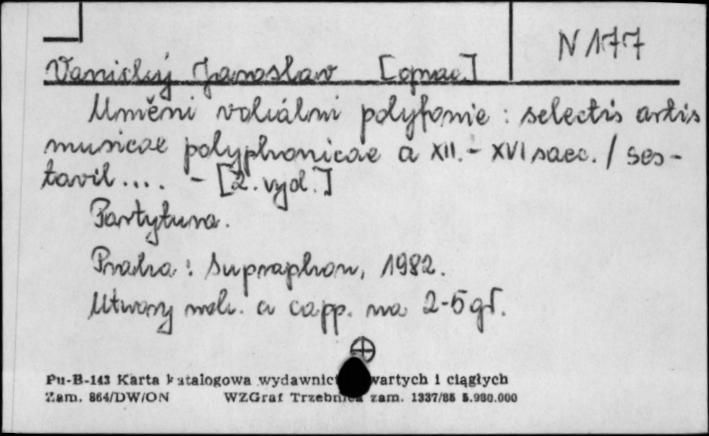 N 177
Vanický Jaroslav [oprac.]
Uměni vokálni polyfonie : selectis artis
musicae polyphonicae a XII. - XVI saec. / ses-
tavil .... - [2. vyd.]
Partytura.
Praha : Supraphon, 1982.
Utwory wok. a capp. na 2-5 gł.
Pu-B-143 Karta katalogowa wydawnict zwartych i ciągłych
Zam. 864/DW/ON WZGraf Trzebnica zam. 1337/85 5.980.000